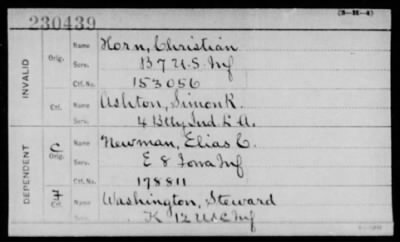 230439
(3-21-4)
INVALID
Orig.
Name Horn, Christian
Serv. B 7 U.S. Inf
Ctf. No. 153056
Ctf.
Name Ashton, Simon K.
Serv. 4 Btty Ind. L. A.
DEPENDENT
C
Orig.
Name Newman, Elias C.
Serv. E 8 Iowa Inf
Ctf. No. 178811
Ctf.
Name Washington, Steward
Serv. K 12 U.S.C. Inf